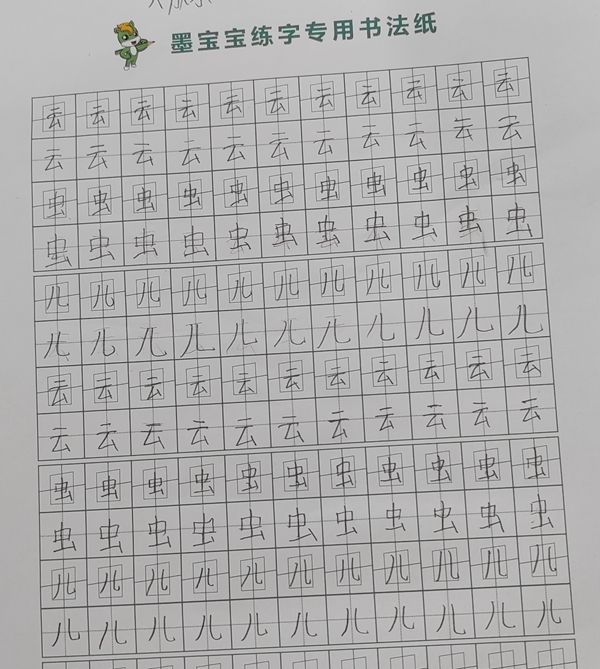 墨宝宝练字专用书法纸
云云云云云云云云云云云
云云云云云云云云云云云
虫虫虫虫虫虫虫虫虫虫虫
虫虫虫虫虫虫虫虫虫虫虫
儿儿儿儿儿儿儿儿儿儿儿
儿儿儿儿儿儿儿儿儿儿儿
云云云云云云云云云云云
云云云云云云云云云云云
虫虫虫虫虫虫虫虫虫虫虫
虫虫虫虫虫虫虫虫虫虫虫
儿儿儿儿儿儿儿儿儿儿儿
儿儿儿儿儿儿儿儿儿儿儿